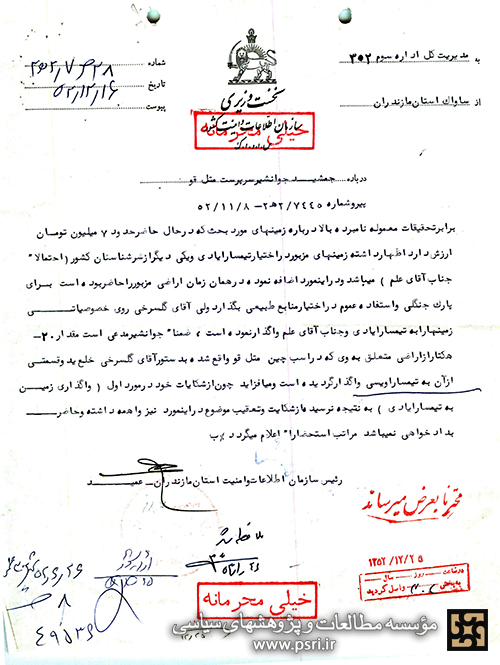 به مدیریت کل اداره سوم ۳۵۲
از ساواک استان مازندران
نخست وزیری
سازمان اطلاعات و امنیت کشور
خیلی محرمانه
شماره
تاریخ ۵۲/۱۲/۱۶
پیوست
درباره جمشید جوانشیر سرپرست متل قو
پیرو شماره ۲/۷۴۴۵ه۲ـ ۵۲/۱۱/۸
برابر تحقیقات معموله نامبرده بالا درباره زمینهای مورد بحث که در حال حاضر حدود ۷ میلیون تومان
ارزش دارد اظهار داشته زمینهای مزبور را اختیار تیمسار ایادی و یکی دیگر از سرشناسان کشور (احتمالا"
جناب آقای علم) میباشد و در اینمورد اضافه نموده در همان زمان اراضی مزبور را حاضر بوده است برای
پارک جنگلی و استفاده عموم در اختیار منابع طبیعی بگذارد ولی آقای گلسرخی روی خصوصیاتی
زمینها را به تیمسار ایادی و جناب آقای علم واگذار نموده است، ضمنا" جوانشیر مدعی است مقدار ۲۰ـ
هکتار از اراضی متعلق به وی که در اسب چین متل قو واقع شده بدستور آقای گلسرخی خلع ید و قسمتی
از آن به تیمسار اویسی واگذار گردیده است و میافزاید چون از شکایات خود در مورد اول (واگذاری زمین
به تیمسار ایادی) به نتیجه نرسیده از شکایت و تعقیب موضوع در اینمورد نیز واهمه داشته و حاضر
بدادخواهی نمیباشد مراتب استحضارا" اعلام میگردد
رئیس سازمان اطلاعات و امنیت استان مازندران ـ عمید
محترمانا بعرض میرساند
ملاحظه شد
۱۳۵۲/۱۲/۲۵
در ساعت روز سال
به بخش واصل گردید
خیلی محرمانه
۴۹۵۳۶
مؤسسه مطالعات و پژوهشهای سیاسی
www.psri.ir